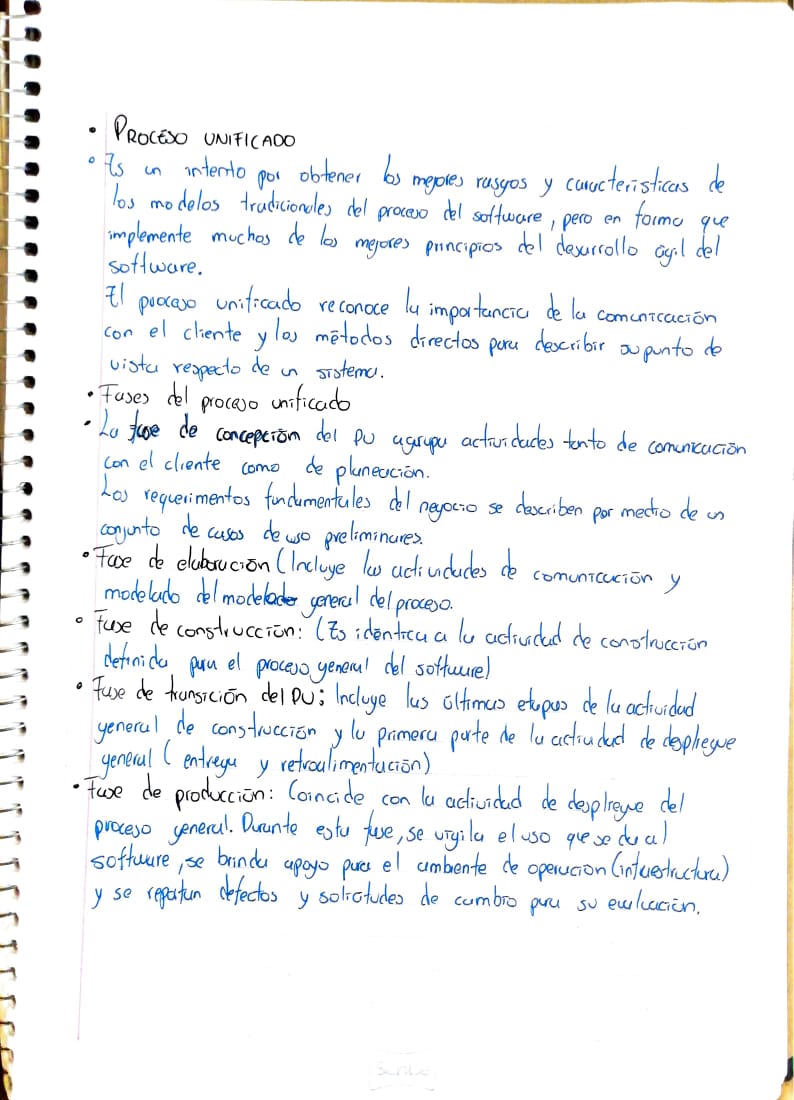 • PROCESO UNIFICADO
• Es un intento por obtener los mejores rasgos y características de
los modelos tradicionales del proceso del software, pero en forma que
implemente muchos de los mejores principios del desarrollo ágil del
software.
El proceso unificado reconoce la importancia de la comunicación
con el cliente y los métodos directos para describir su punto de
vista respecto de un sistema.
• Fases del proceso unificado
• La fase de concepción del PU agrupa actividades tanto de comunicación
con el cliente como de planeación.
Los requerimentos fundamentales del negocio se describen por medio de un
conjunto de casos de uso preliminares.
• Fase de elaboración (Incluye las actividades de comunicación y
modelado del modelado general del proceso.
• Fase de construcción: (Es idéntica a la actividad de construcción
definida para el proceso general del software)
• Fase de transición del PU; Incluye las últimas etapas de la actividad
general de construcción y la primera parte de la actividad de despliegue
general (entrega y retroalimentación)
• Fase de producción: Coincide con la actividad de despliegue del
proceso general. Durante esta fase, se vigila el uso que se da al
software, se brinda apoyo para el ambiente de operación (infraestructura)
y se reportan defectos y solicitudes de cambio para su evaluación.
Scribe